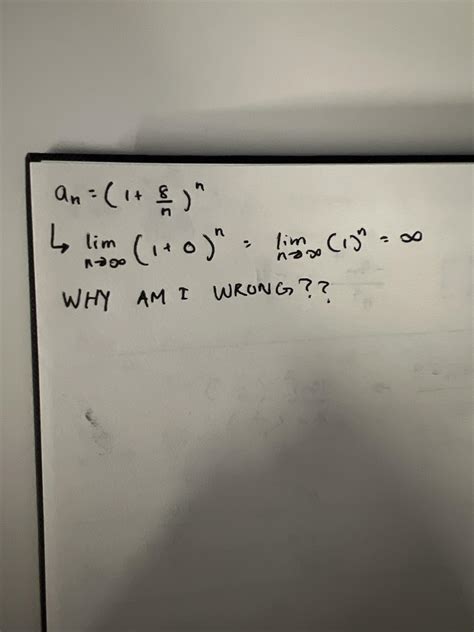 aₙ = (1 + 8/n)ⁿ
↳ lim n→∞ (1 + 0)ⁿ = lim n→∞ (1)ⁿ = ∞
WHY AM I WRONG??